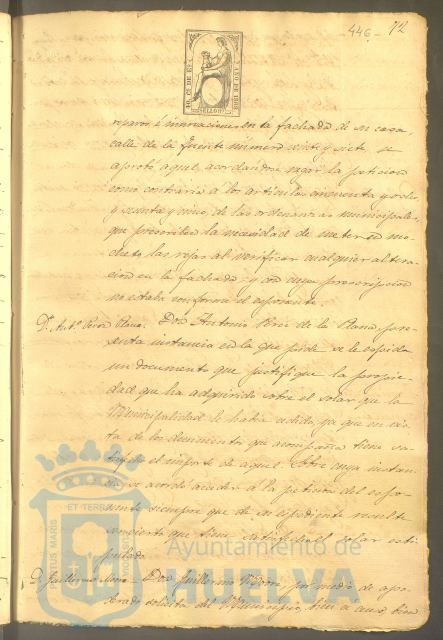 446_ 72
50. CS. DE Eº. AÑO DE 1868
SELLO 9º
reparos é innovaciones en la fachada de su casa
calle de la Fuente número veinte y siete se
aprobó aquel acordandose negar la peticion
como contraria á los artículos cincuenta y ocho
y sesenta y cinco, de las ordenanzas municipales
que prescriben la necesidad de meter
las rejas al verificar cualquier altera-
cion en la fachada y con cuya prescripcion
no estaba conforme el esponente
Dn. Antº. Perez Plana. Don Antonio Perez de la Plana, pre-
senta instancia en la que pide se le espida
un documento que justifique la propie-
dad que ha adquirido sobre el solar que la
Municipalidad le habia cedido, ya que en vis-
ta de los documentos que acompaña tiene sa-
tisfecho el importe de aquel. Sobre cuya instan-
cia se acordó acceder á la peticion del espo-
nente siempre que de su espediente resulte
que tiene satisfecho el solar esti-
pulado
Dn. Guillermo Don Guillermo por medio de apo-
derado solicita del Municipio, bien á censo, bien
PORTUS MARIS ET TERRAE CUSTODIA
Ayuntamiento de
HUELVA